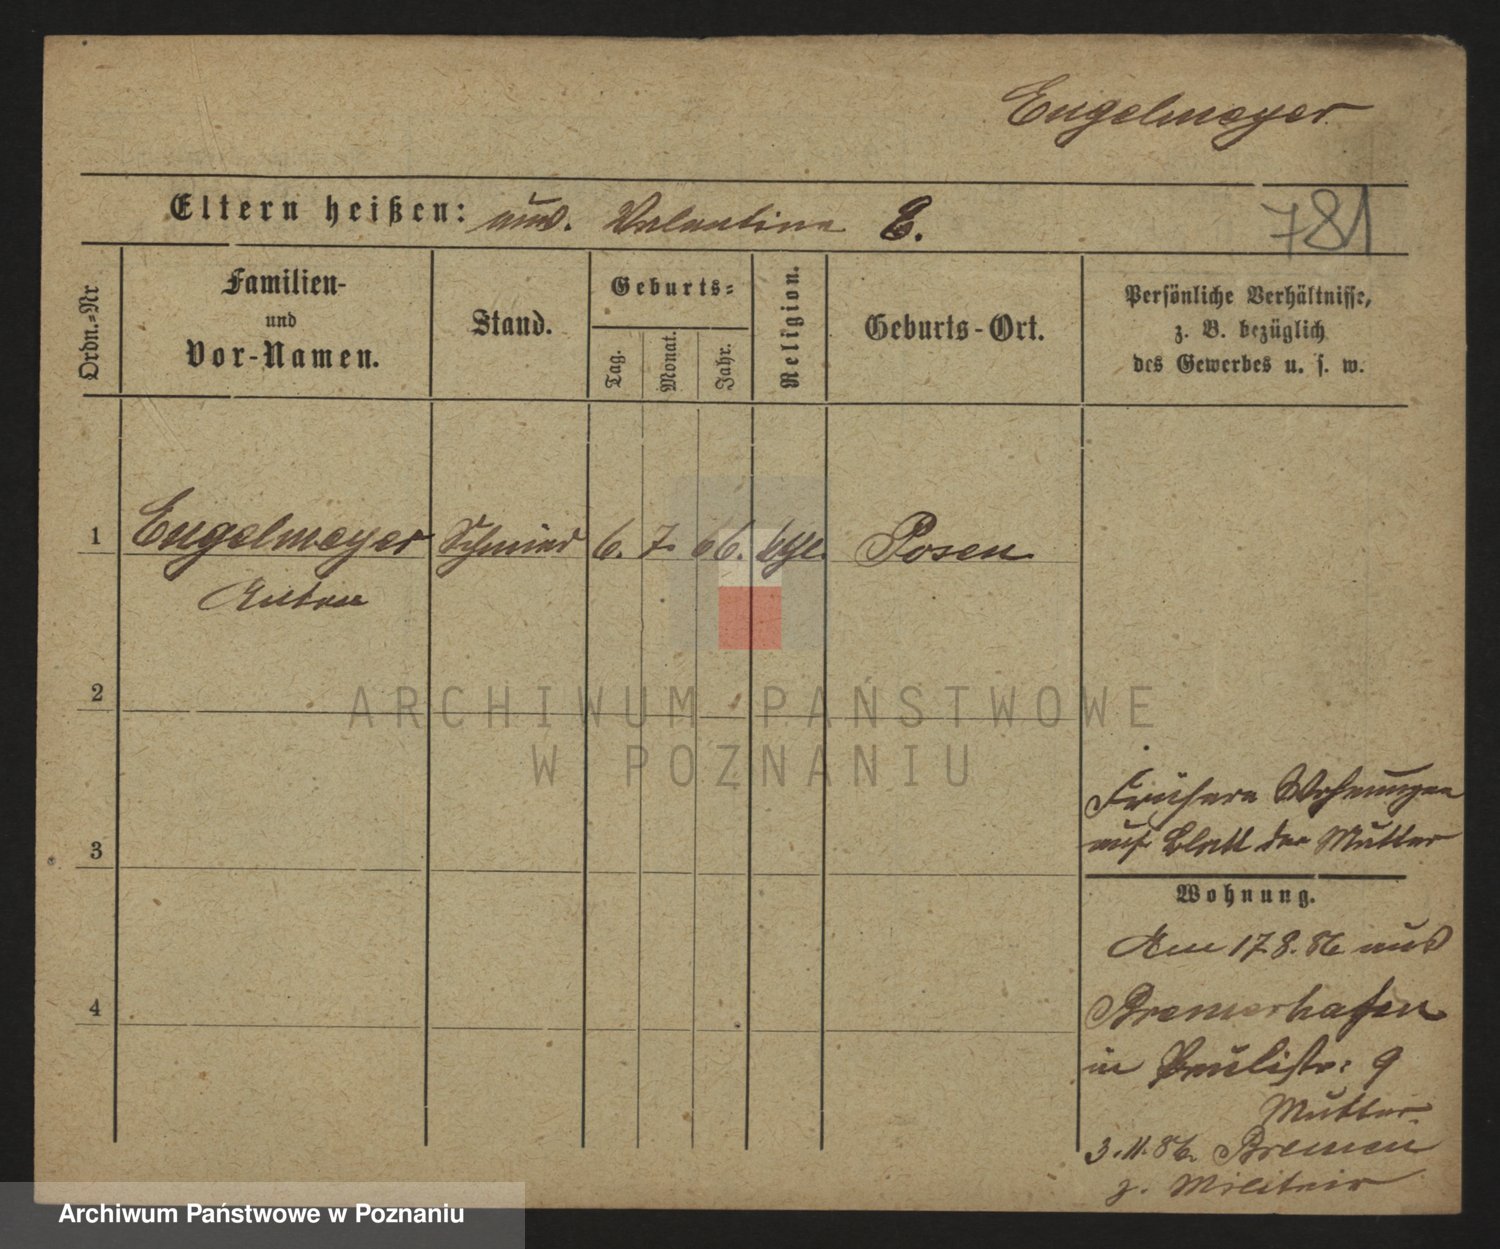 Engelmeyer
Eltern heißen: unv. Valentina E.
781
Ordn.-Nr
Familien-
und
Vor-Namen.
Stand.
Geburts-
Tag.
Monat.
Jahr.
Religion.
Geburts-Ort.
Persönliche Verhältnisse,
z. B. bezüglich
des Gewerbes u. s. w.
1 Engelmeyer Schmied 6. 7. 66. Posen
Anton
2
ARCHIWUM PAŃSTWOWE
W POZNANIU
3
Frühere Wohnungen
auf Blatt der Mutter
Wohnung.
Am 17.8.86 aus
4
Bremerhafen
in Paulistr: 9
Mutter
3.11.86. Bremen
z. Militair
Archiwum Państwowe w Poznaniu